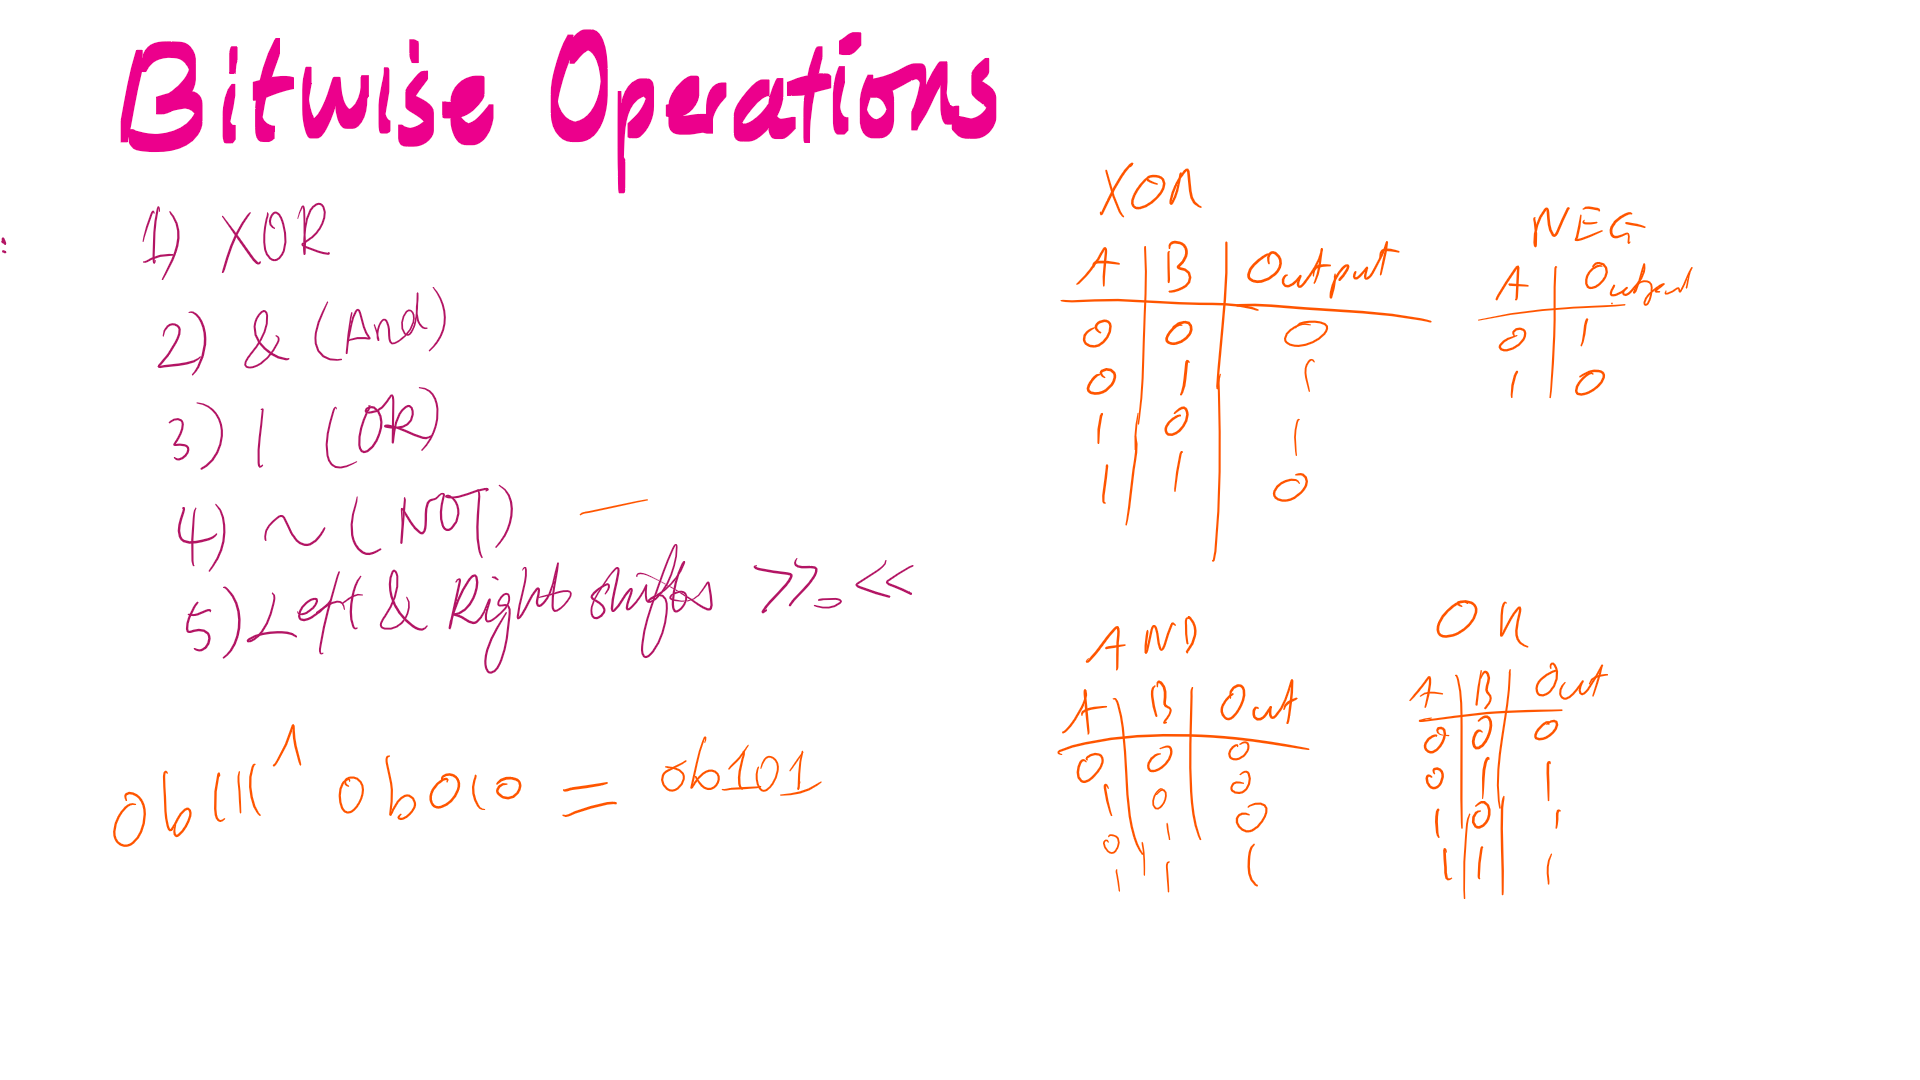 Bitwise Operations
1) XOR
2) & (And)
3) | (OR)
4) ~ (NOT)
5) Left & Right shifts >> <<
0b111 ^ 0b010 = 0b101
XOR
A B Output
0 0 0
0 1 1
1 0 1
1 1 0
NEG
A Output
0 1
1 0
AND
A B Out
0 0 0
1 0 0
0 1 0
1 1 1
OR
A B Out
0 0 0
0 1 1
1 0 1
1 1 1